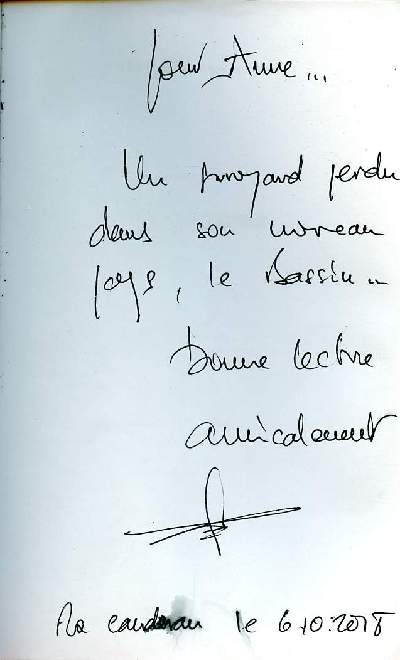 Pour Anne...
Un savoyard perdu
dans son nouveau
pays, le Bassin...
Bonne lecture
amicalement
le 6.10.2018